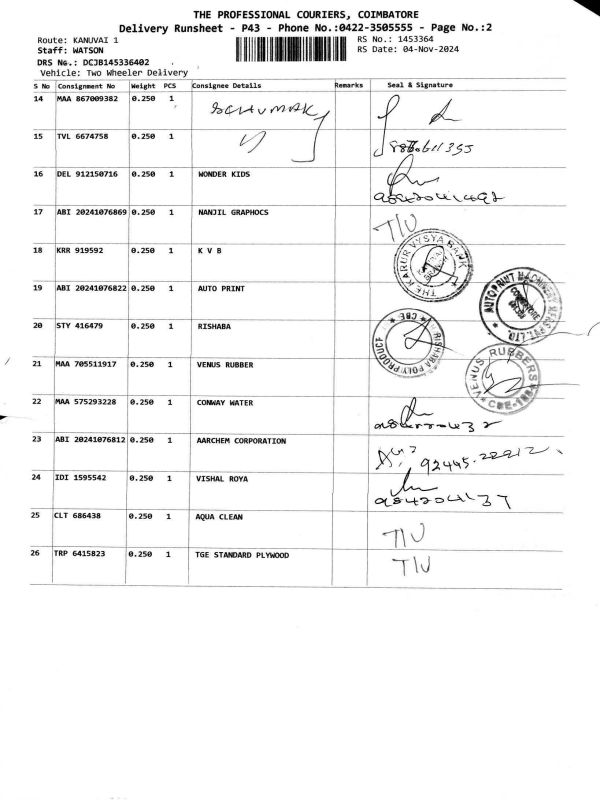 THE PROFESSIONAL COURIERS, COIMBATORE
Delivery Runsheet - P43 - Phone No.:0422-3505555 - Page No.:2
Route: KANUVAI 1
RS No.: 1453364
Staff: WATSON
RS Date: 04-Nov-2024
DRS No.: DCJB145336402
Vehicle: Two Wheeler Delivery
S No Consignment No Weight PCS Consignee Details Remarks Seal & Signature
14 MAA 867009382 0.250 1
15 TVL 6674758 0.250 1
16 DEL 912150716 0.250 1 WONDER KIDS
17 ABI 20241076869 0.250 1 NANJIL GRAPHOCS
T/U
18 KRR 919592 0.250 1 K V B
THE KARUR VYSYA BANK
19 ABI 20241076822 0.250 1 AUTO PRINT
AUTOPRINT MACHINERY MFRS PVT. LTD.
COIMBATORE
20 STY 416479 0.250 1 RISHABA
RISHABA POLYPRODUCT CBE
21 MAA 705511917 0.250 1 VENUS RUBBER
VENUS RUBBERS
22 MAA 575293228 0.250 1 CONWAY WATER
23 ABI 20241076812 0.250 1 AARCHEM CORPORATION
24 IDI 1595542 0.250 1 VISHAL ROYA
25 CLT 686438 0.250 1 AQUA CLEAN
T/U
26 TRP 6415823 0.250 1 TGE STANDARD PLYWOOD
T/U